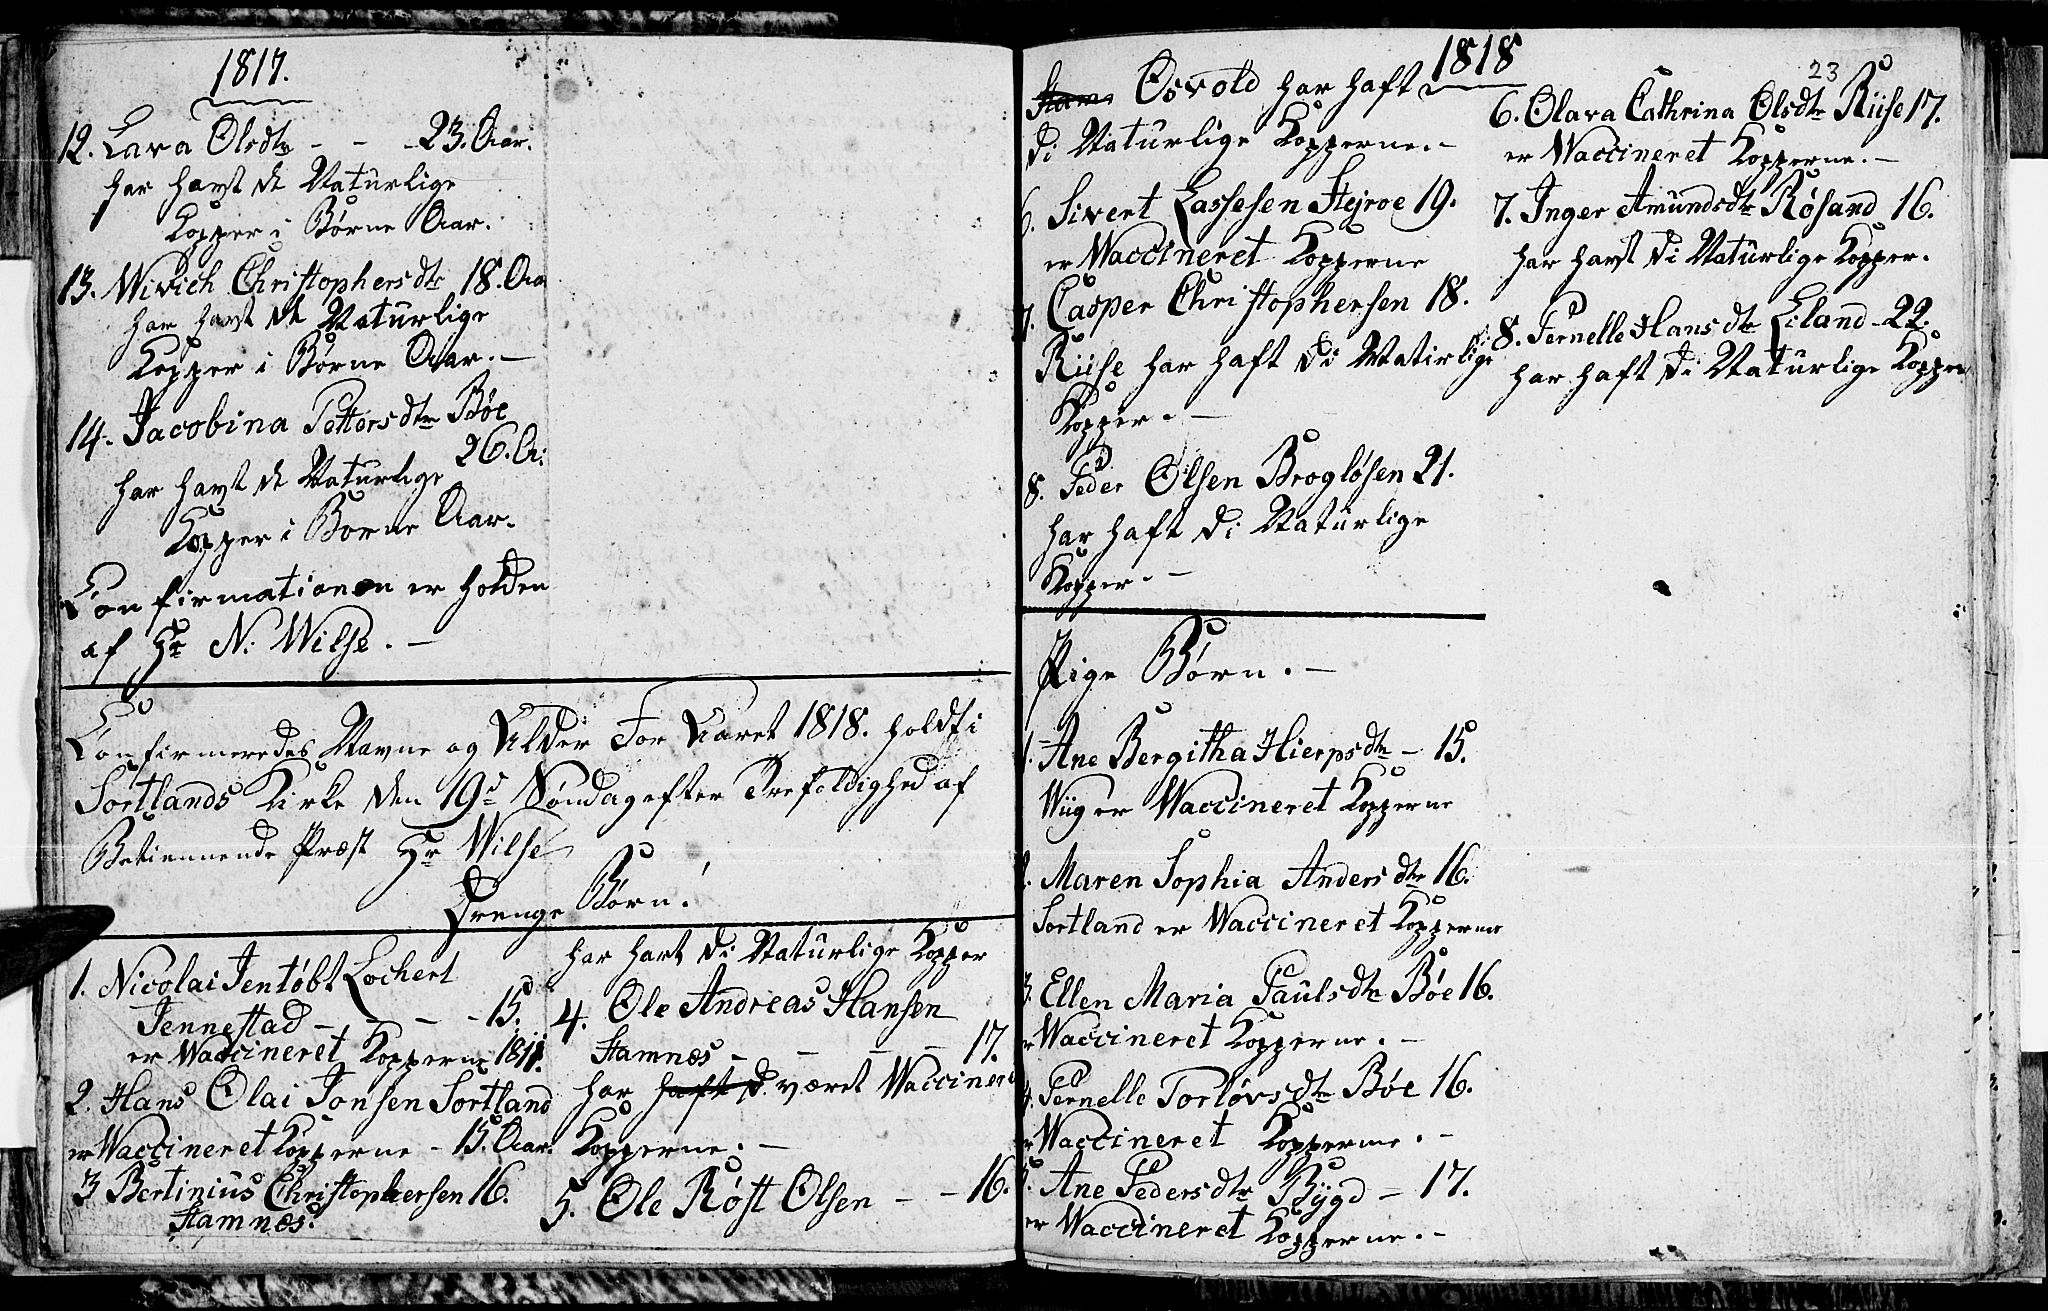 1817.
12. Lava Olsdtr - - - 23. Aar.
har havt de Naturlige
Kopper i Børne Aar.
13. Wivich Christophersdtr 18. Aar
har havt de Naturlige
Kopper i Børne Aar. -
14. Jacobina Pettersdtr Bøe
26. A:
har havt de Naturlige
Kopper i Borne Aar.
Confirmationen er holden
af Hr N. Wilse. -
Confirmeredes Navne og Alder For Aaret 1818. holdt i
Sortlands Kirke den 19d Søndag efter Trefoldighed af
Betiennende Præst Hr Wilse
Drenge Børn.
1. Nicolai Jentøbt Lochert
Jennestad - - - - 15.
er Waccineret Kopperne 1811.
2. Hans Olai Jonsen Sortland
er Waccineret Kopperne - 15. Aar.
3 Bertinius Christophersen 16.
Stamnæs.
har hart di Naturlige Kopper
4. Ole Andreas Hansen
Stamnæs - - - - 17.
har haft d været Waccineret
Kopperne. -
5. Ole Røst Olsen - - 16.
1818
23
Stam Osvold har haft
di Naturlige Kopperne. -
6. Sivert Lassesen Stejroe 19.
er Waccineret Kopperne
7. Casper Christophersen 18.
Riise har haft di Natirlige
Kopper. -
8. Peder Olsen Brogløsen 21.
har haft di Naturlige
Kopper. -
Pige Børn. -
1. Ane Bergitha Hierpsdtr - 15.
Wiig er Waccineret Kopperne
2. Maren Sophia Andersdtr 16.
Sortland er Waccineret Kopperne
3. Ellen Maria Paulsdtr Bøe 16.
er Waccineret Kopperne. -
4. Pernelle Torløvsdtr Bøe 16.
er Waccineret Kopperne. -
5. Ane Pedersdtr Bygd - 17.
er Waccineret Kopperne. -
6. Olava Cathrina Olsdtr Riise 17.
er Waccineret Kopperne. -
7. Inger Amundsdtr Røsand 16.
har havt di Naturlige Kopper.
8. Pernelle Hansdtr Eiland - 22.
har haft di Naturlige Kopper